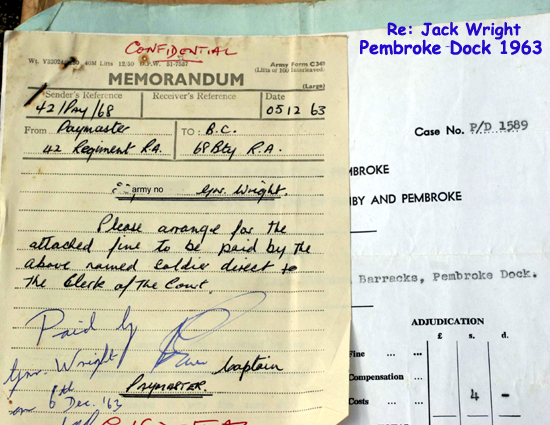 Re: Jack Wright
Pembroke Dock 1963
CONFIDENTIAL
Army Form C348
MEMORANDUM
(Large)
Sender's Reference Receiver's Reference Date
42/Pay/68 05 12 63
From Paymaster TO: B.C.
42 Regiment R.A. 68 Bty R.A.
army no Gnr. Wright.
Please arrange for the
attached fine to be paid by the
above named soldier direct to
the Clerk of the Court.
Paid by
Gnr. Wright
on 6th Dec. '63
Captain
PAYMASTER.
Case No. P/D 1589
MBROKE
NBY AND PEMBROKE
Barracks, Pembroke Dock.
ADJUDICATION
£ s. d.
Fine ... ...
Compensation ...
Costs ... ... 4 -